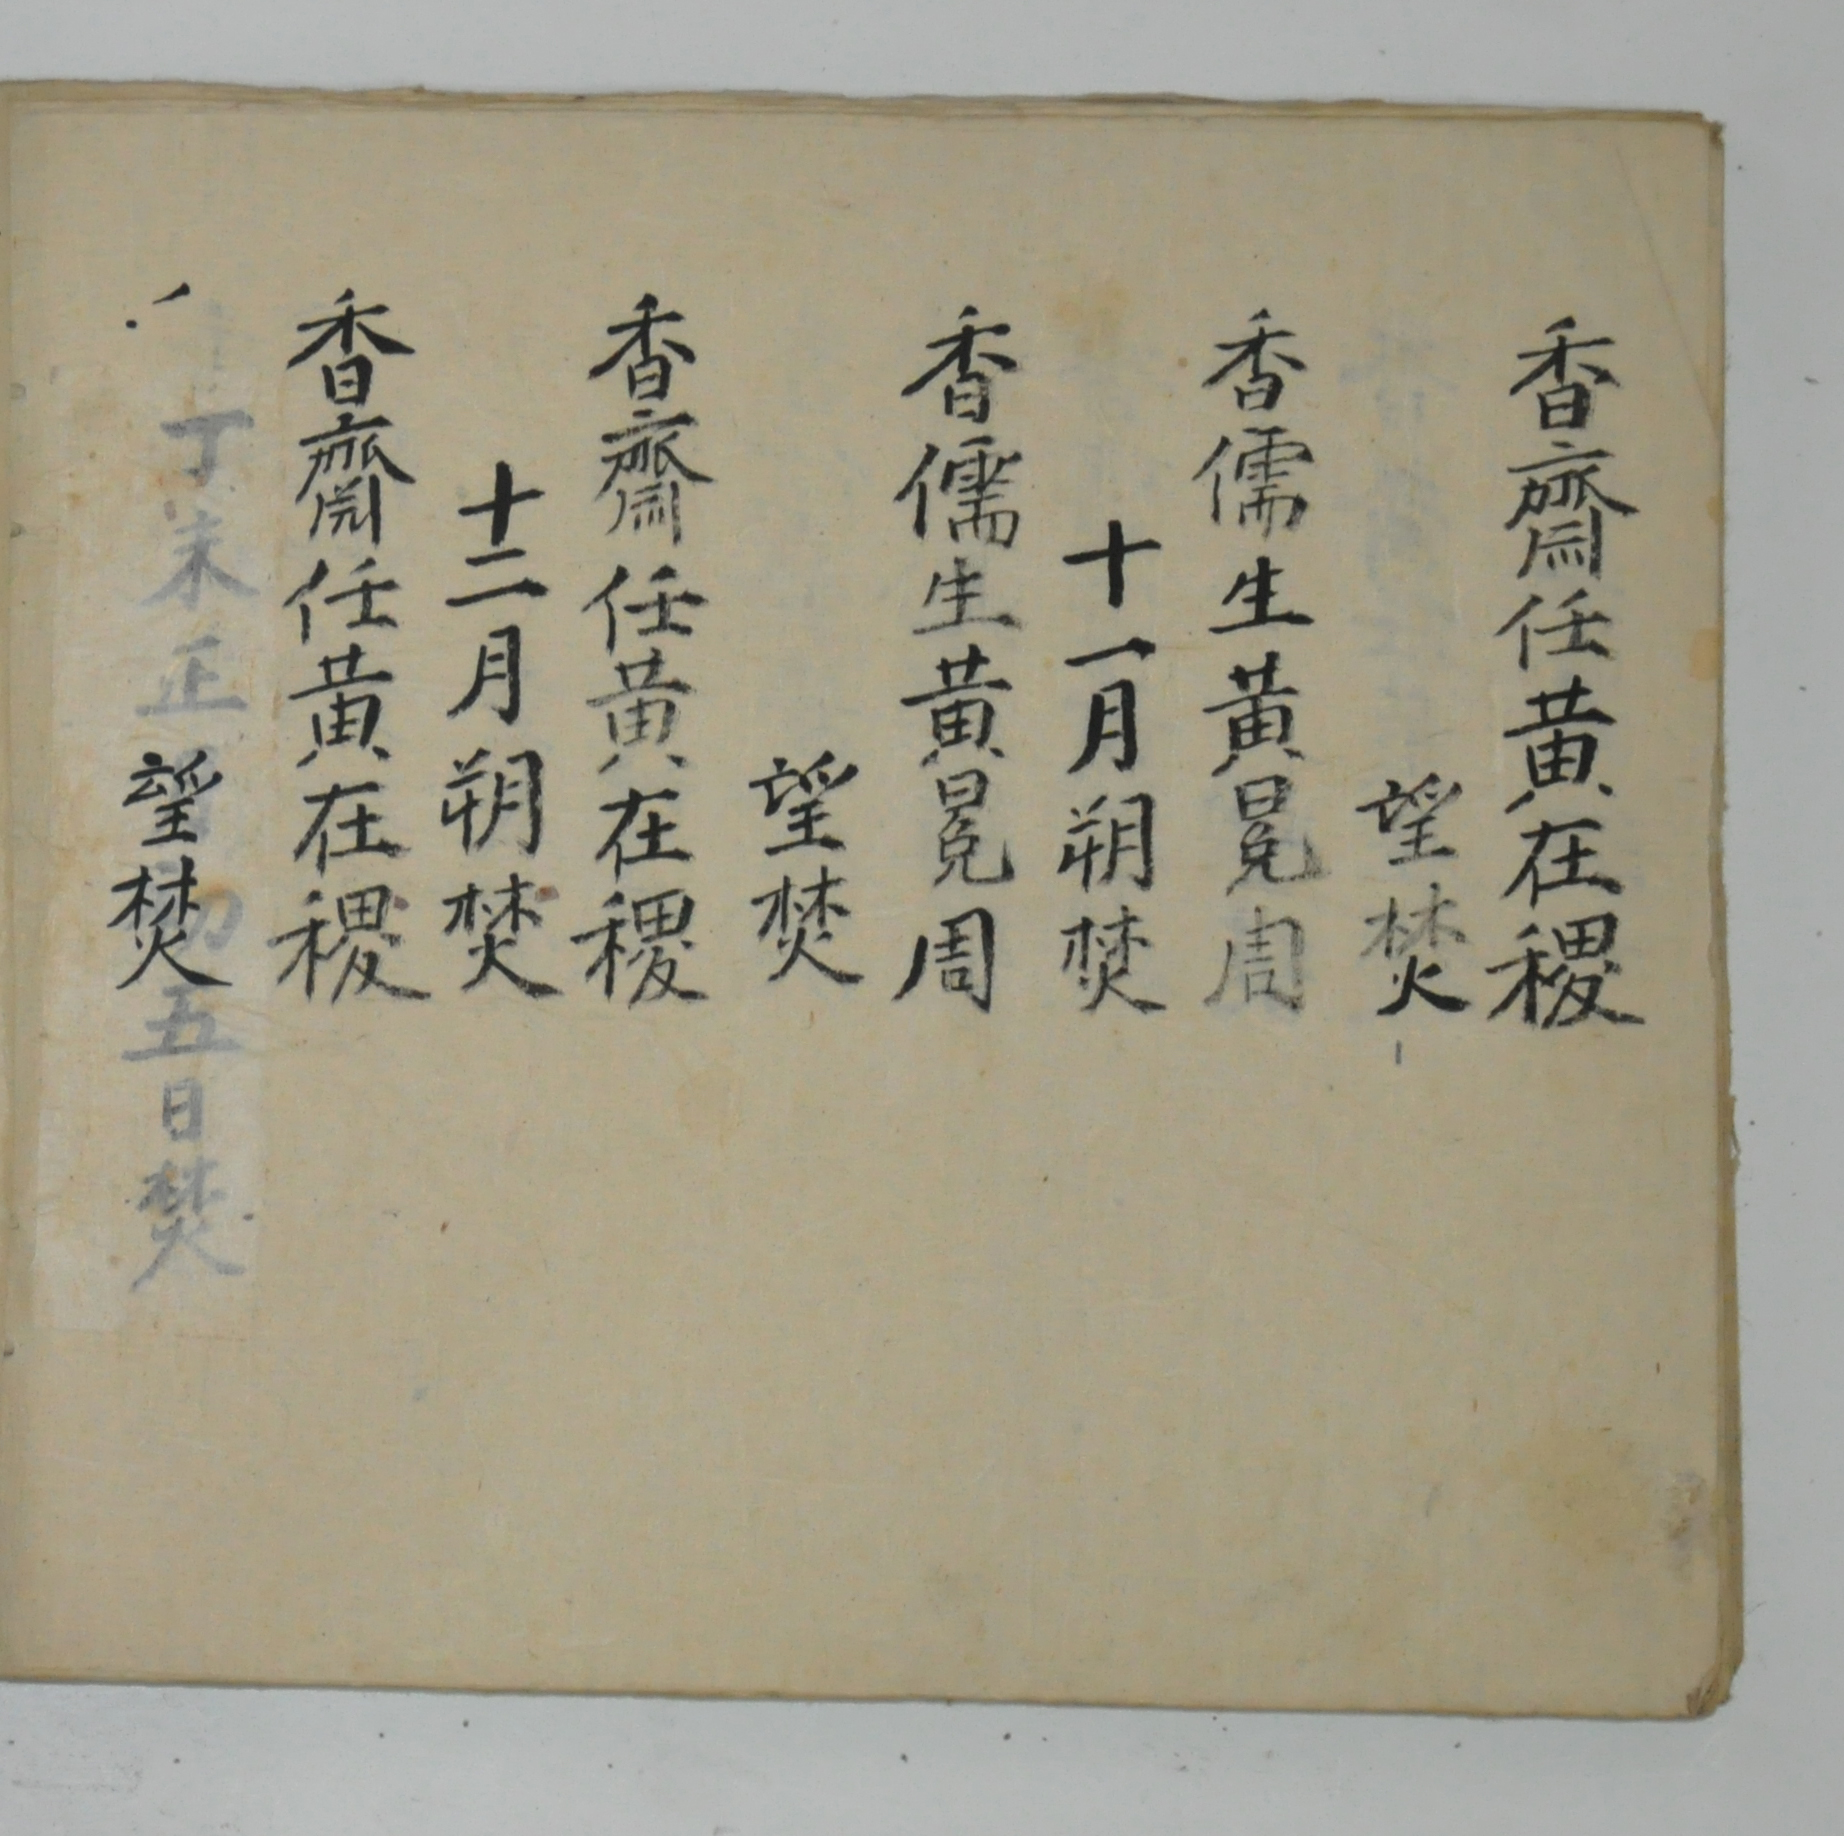 香齋任黃在稷
望焚
香儒生黃冕周
十一月朔焚
香儒生黃冕周
望焚
香齋任黃在稷
十二月朔焚
香齋任黃在稷
望焚
丁未正 五日焚